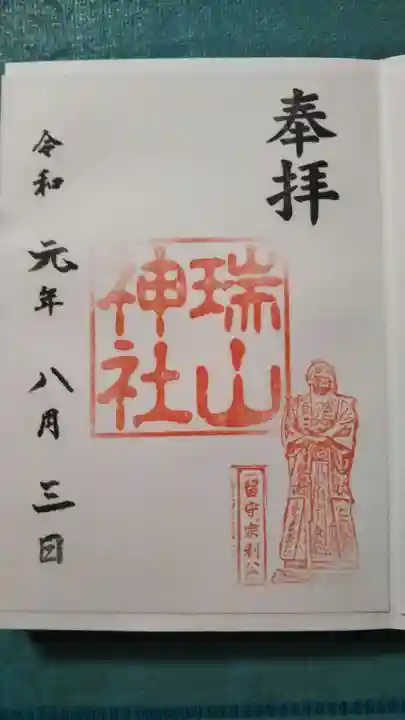 奉拝
瑞山
神社
留守宗利公
令和元年八月三日